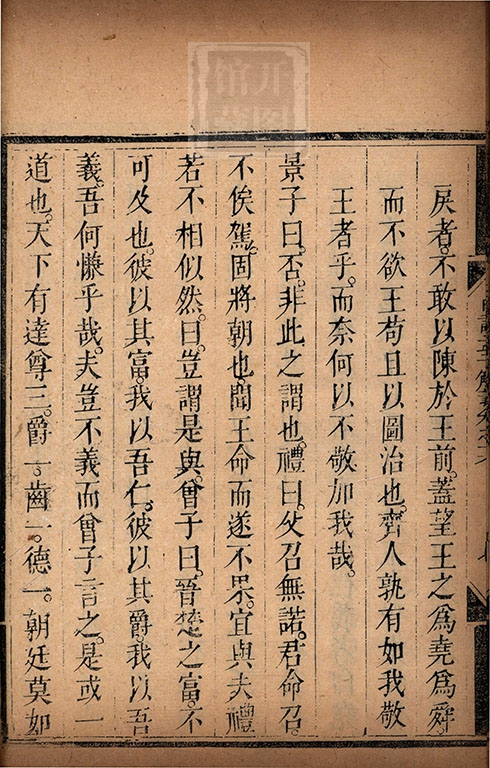 戾者不敢以陳於王前。蓋望王之爲堯爲舜。
而不欲王苟且以圖治也。齊人孰有如我敬
王者乎。而奈何以不敬加我哉。
景子曰。否。非此之謂也。禮曰。父召無諾。君命召。
不俟駕。固將朝也。聞王命而遂不果。宜與夫禮
若不相似然。曰。豈謂是與。曾子曰。晉楚之富。不
可及也。彼以其富。我以吾仁。彼以其爵。我以吾
義。吾何慊乎哉。夫豈不義而曾子言之。是或一
道也。天下有達尊三。爵一。齒一。德一。朝廷莫如
开图
馆藏